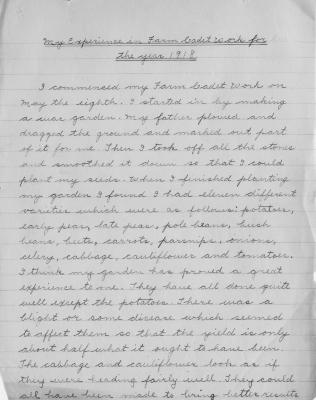 My Experience in Farm Cadet Work for
the year 1918
I commenced my Farm Cadet Work on
May the eighth. I started in by making
a war garden. My father plowed and
dragged the ground and marked out part
of it for me. Then I took off all the stones
and smoothed it down so that I could
plant my seeds. When I finished planting
my garden I found I had eleven different
varieties which were as follows: potatoes,
early peas, late peas, pole beans, bush
beans, beets, carrots, parsnips, onions,
celery, cabbage, cauliflower and tomatoes.
I think my garden has proved a great
experience to me. They have all done quite
well exept the potatoes. There was a
blight or some disease which seemed
to affect them so that the yield is only
about half what it ought to have been.
The cabbage and cauliflower look as if
they were heading fairly well. They could
all have been made to bring better results